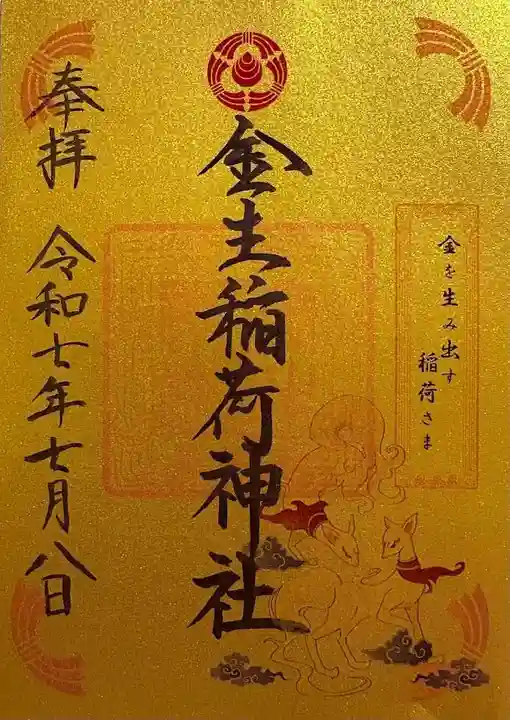 金を生み出す
稲荷さま
金生稲荷神社
奉拝 令和七年七月八日